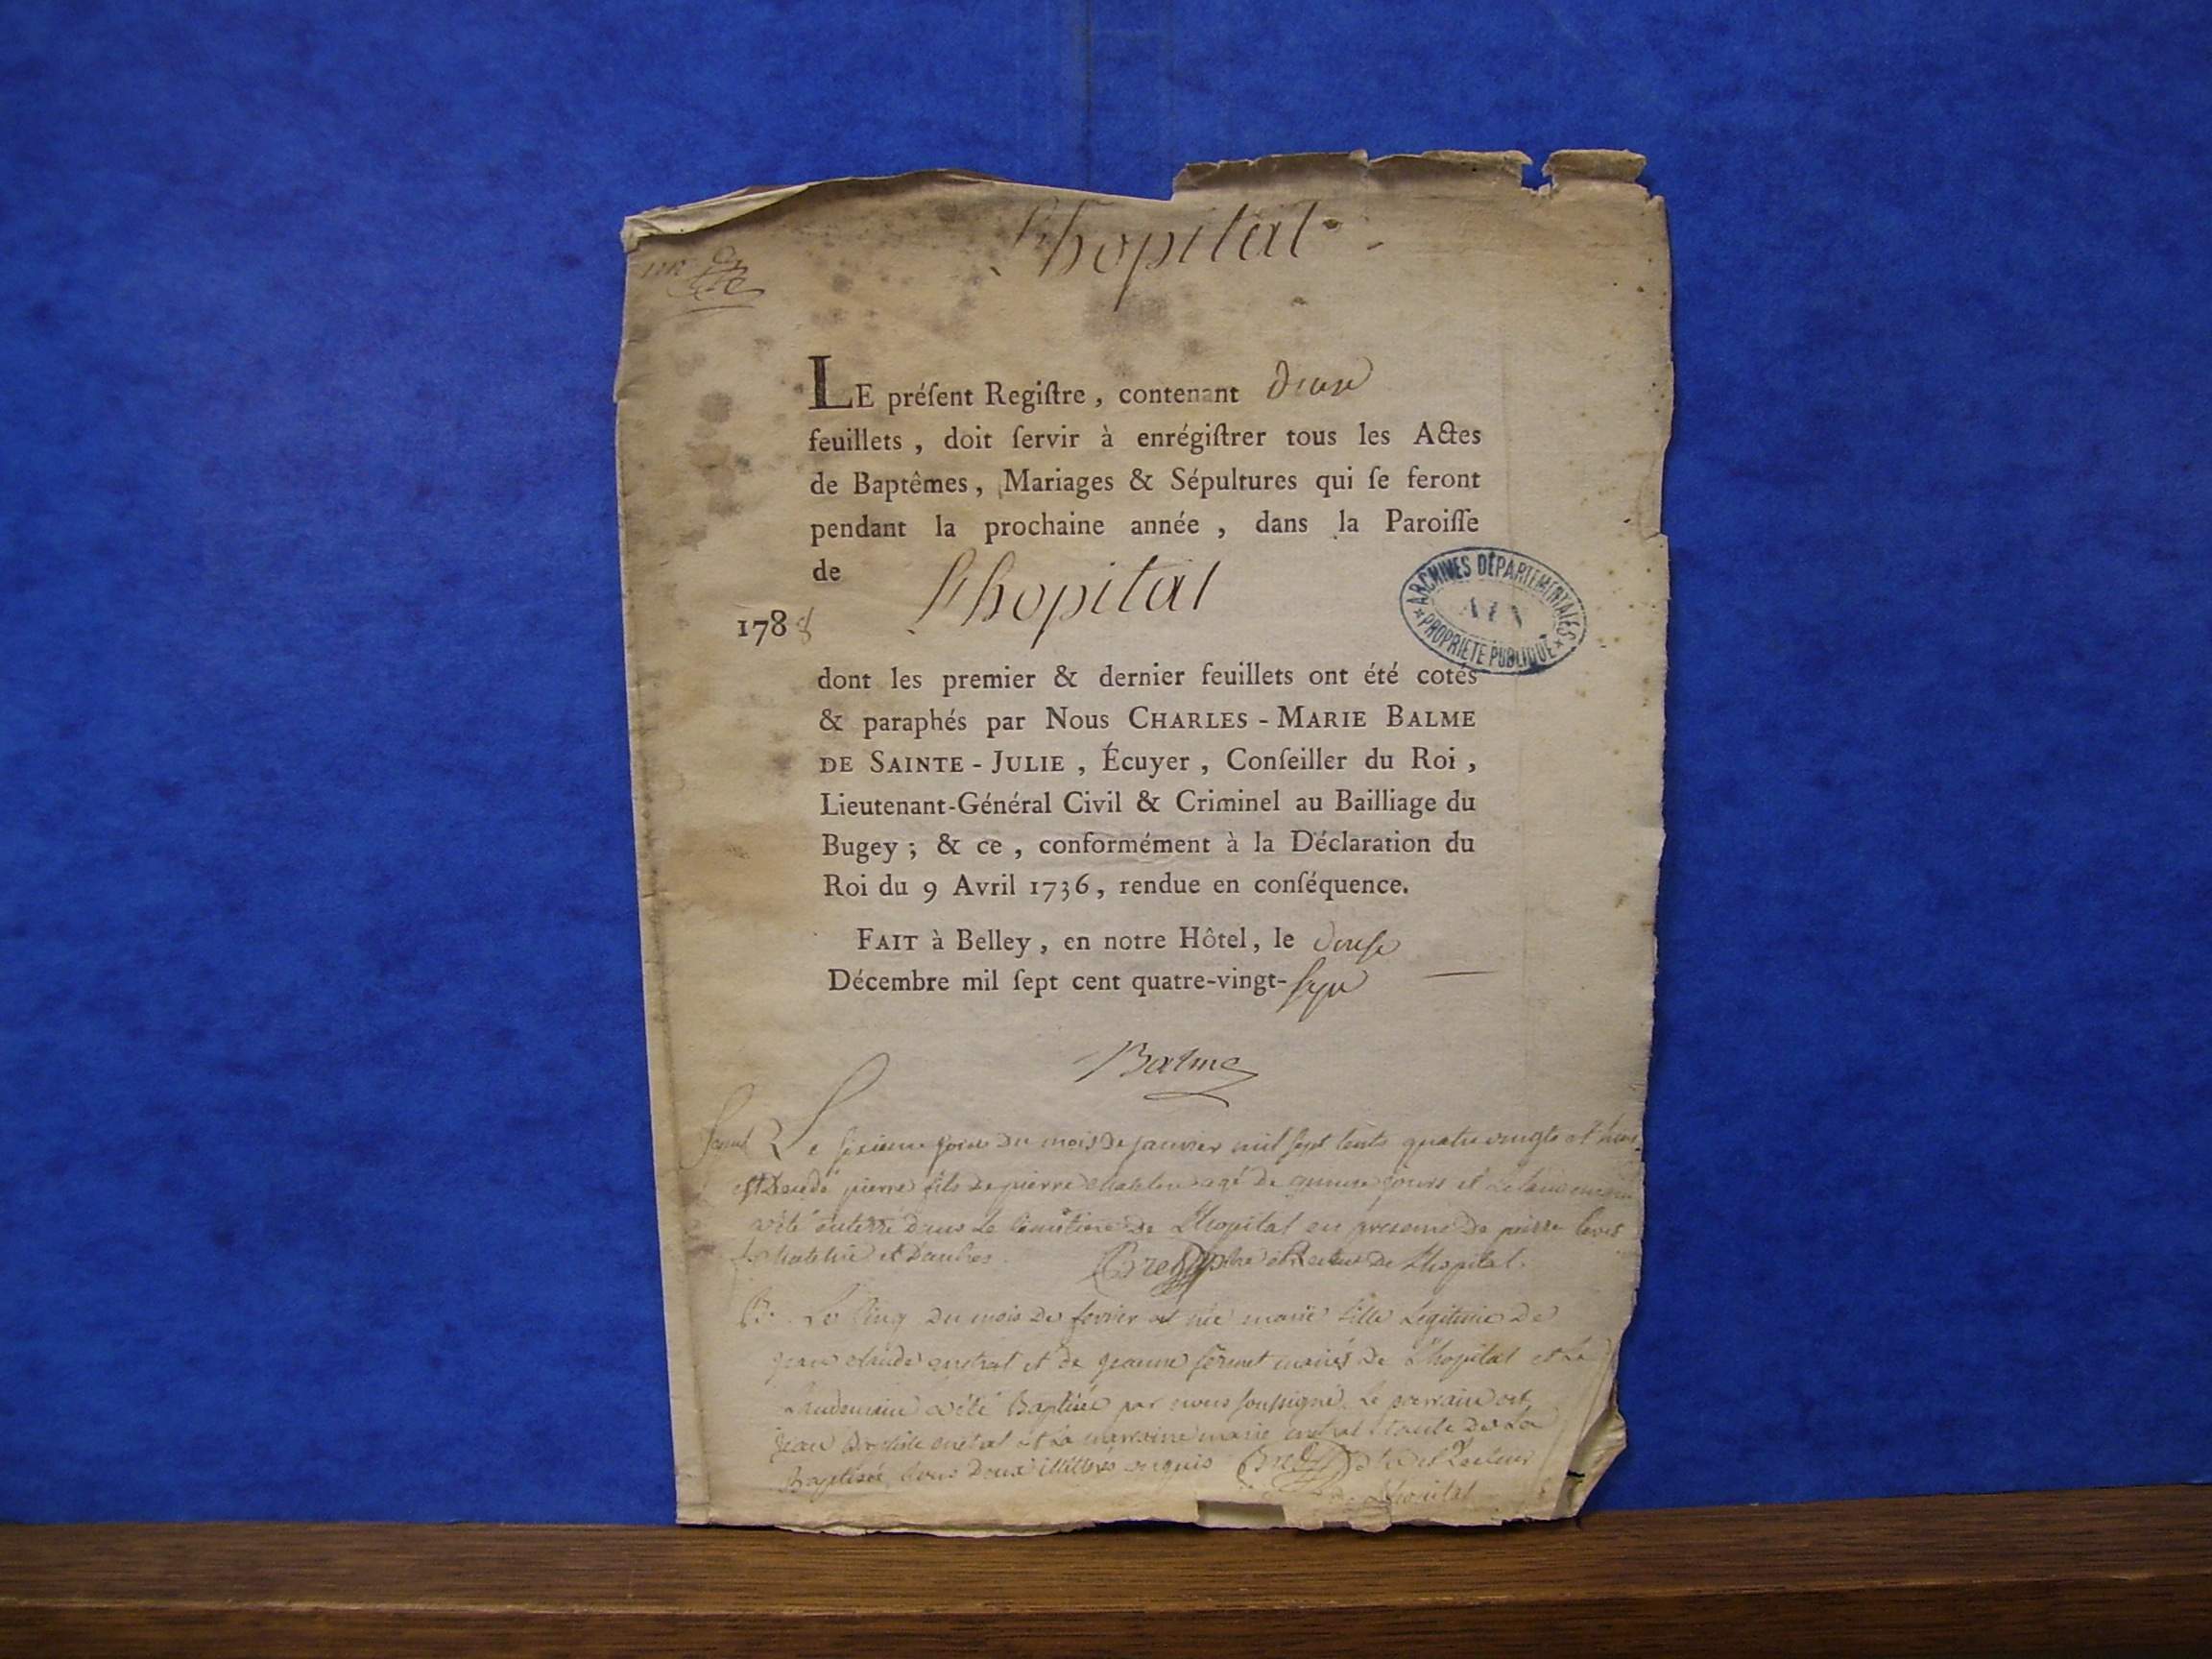 L'hopital
LE préſent Regiſtre, contenant deux
feuillets, doit ſervir à enrégiſtrer tous les Actes
de Baptêmes, Mariages & Sépultures qui ſe feront
pendant la prochaine année, dans la Paroiſſe
de L'hopital
1788
ARCHIVES DÉPARTEMENTALES
AIN
PROPRIÉTÉ PUBLIQUE
dont les premier & dernier feuillets ont été cotés
& paraphés par Nous CHARLES-MARIE BALME
DE SAINTE-JULIE, Écuyer, Conſeiller du Roi,
Lieutenant-Général Civil & Criminel au Bailliage du
Bugey; & ce, conformément à la Déclaration du
Roi du 9 Avril 1736, rendue en conſéquence.
FAIT à Belley, en notre Hôtel, le douse
Décembre mil ſept cent quatre-vingt-sept
Balme
Le jour du mois de janvier mil sept cents quatre vingts et huit
est décédé pierre fils de pierre agé de jours et
a été enterré dans Le de L'hopital en presence de pierre
et d'autres et Recteur de L'hopital
B. Le cinq du mois de fevrier est née marie fille Legitime de
jean claude et de jeanne mariés de L'hopital et Le
Landemain a été Baptisée par nous soussigné. Le parrain est
jean Baptiste et La marraine marie tante de La
Baptisée, tous deux illitérés enquis Recteur
de L'hopital